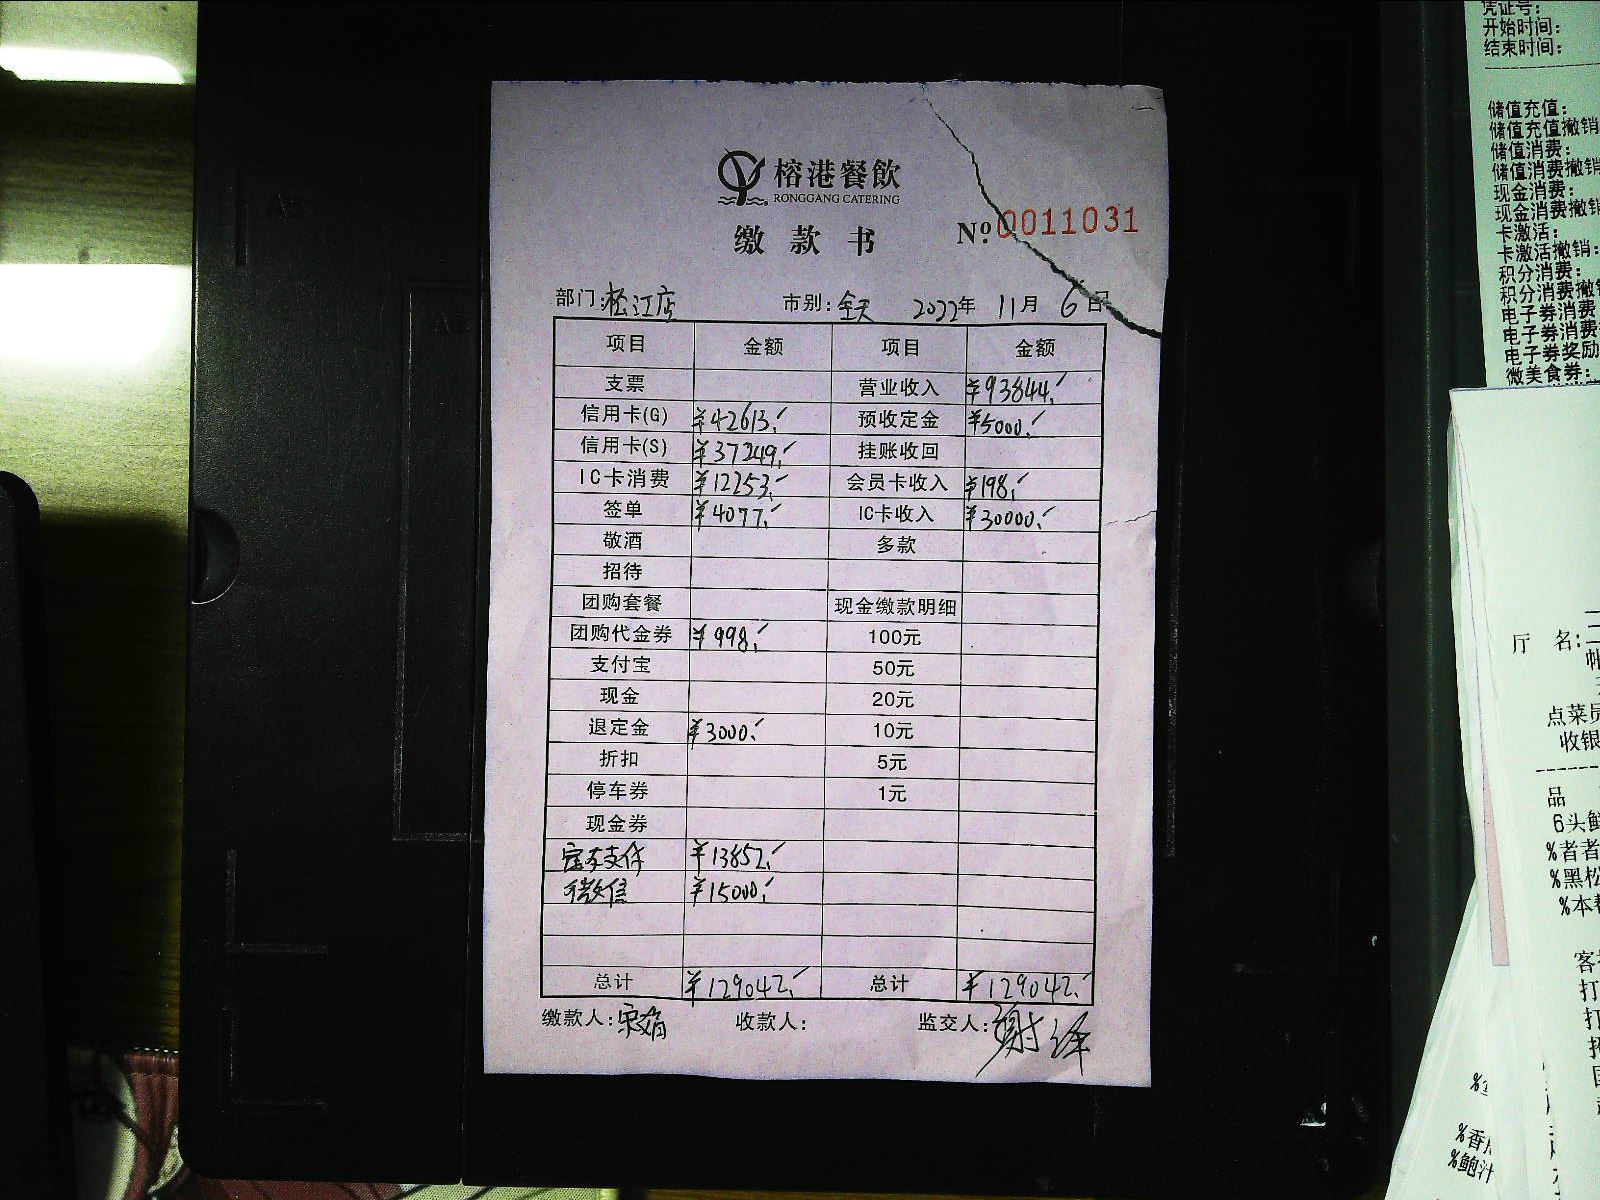 榕港餐飲
RONGGANG CATERING
缴款书
Nº 0011031
部门:松江店 市别:全天 2022年 11月 6日
项目 金额 项目 金额
支票 营业收入 ¥93844.
信用卡(G) ¥42613. 预收定金 ¥5000.
信用卡(S) ¥37249. 挂账收回
IC卡消费 ¥12253. 会员卡收入 ¥198.
签单 ¥4077. IC卡收入 ¥30000.
敬酒 多款
招待
团购套餐 现金缴款明细
团购代金券 ¥998. 100元
支付宝 50元
现金 20元
退定金 ¥3000. 10元
折扣 5元
停车券 1元
现金券
支付 ¥13852.
微信 ¥15000.
总计 ¥129042. 总计 ¥129042.
缴款人: 收款人: 监交人:谢
凭证号:
开始时间:
结束时间:
储值充值:
储值充值撤销
储值消费:
储值消费撤销
现金消费:
现金消费撤销
卡激活:
卡激活撤销:
积分消费:
积分消费撤销
电子券消费
电子券消费
电子券奖励
微美食券:
厅 名:
点菜员
收银
品
6头鲍
%者者
%黑松
%本
客
打
打
%香
%鲍汁